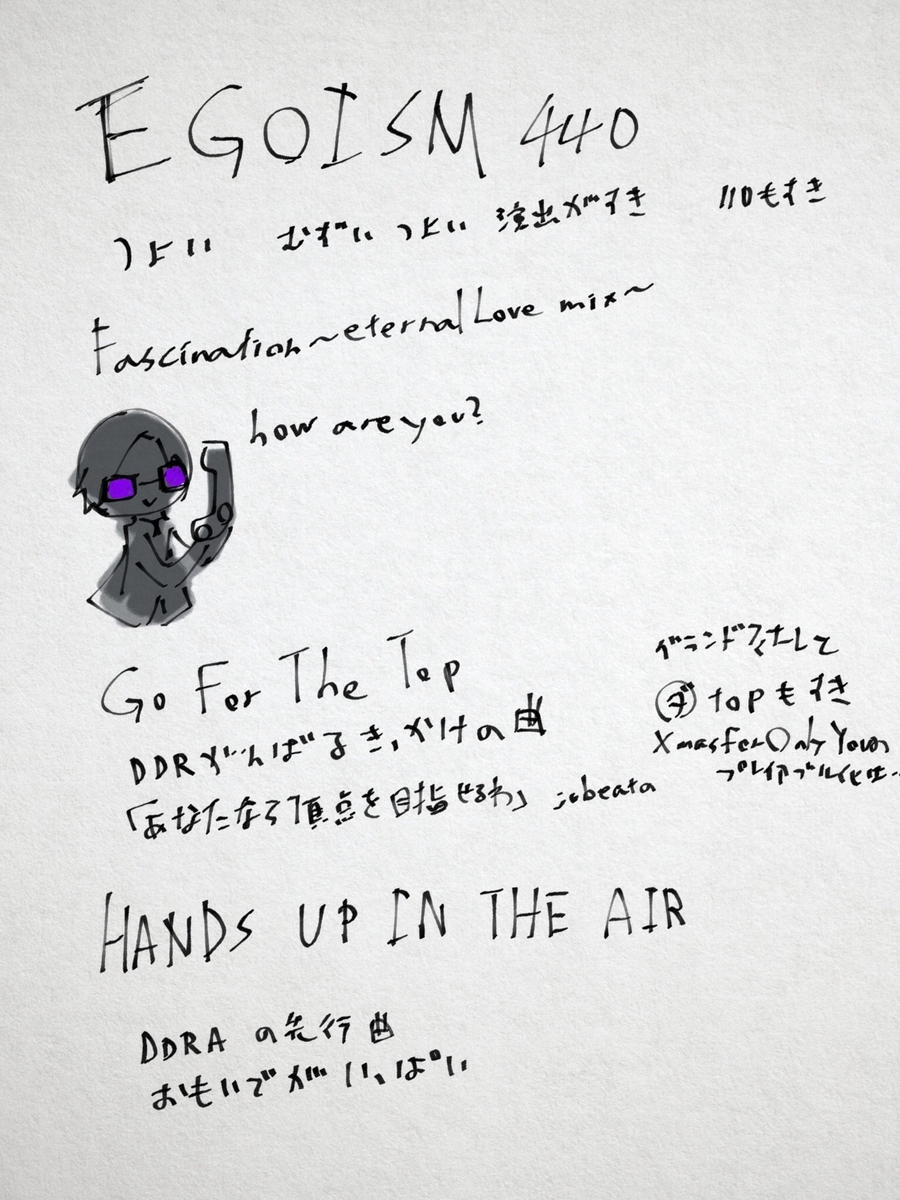 EGOISM 440
つよい むずい つよい 演出がすき 110もすき
Fascination ~eternal Love mix~
how are you?
Go For The Top
DDRがんばるきっかけの曲
「あなたなら頂点を目指せるわ」 jubeata
グランドフィナーレして
ダ topもすき
XmasFerOnly You の
プレイアブル化は…
HANDS UP IN THE AIR
DDRA の先行曲
おもいでがいっぱい